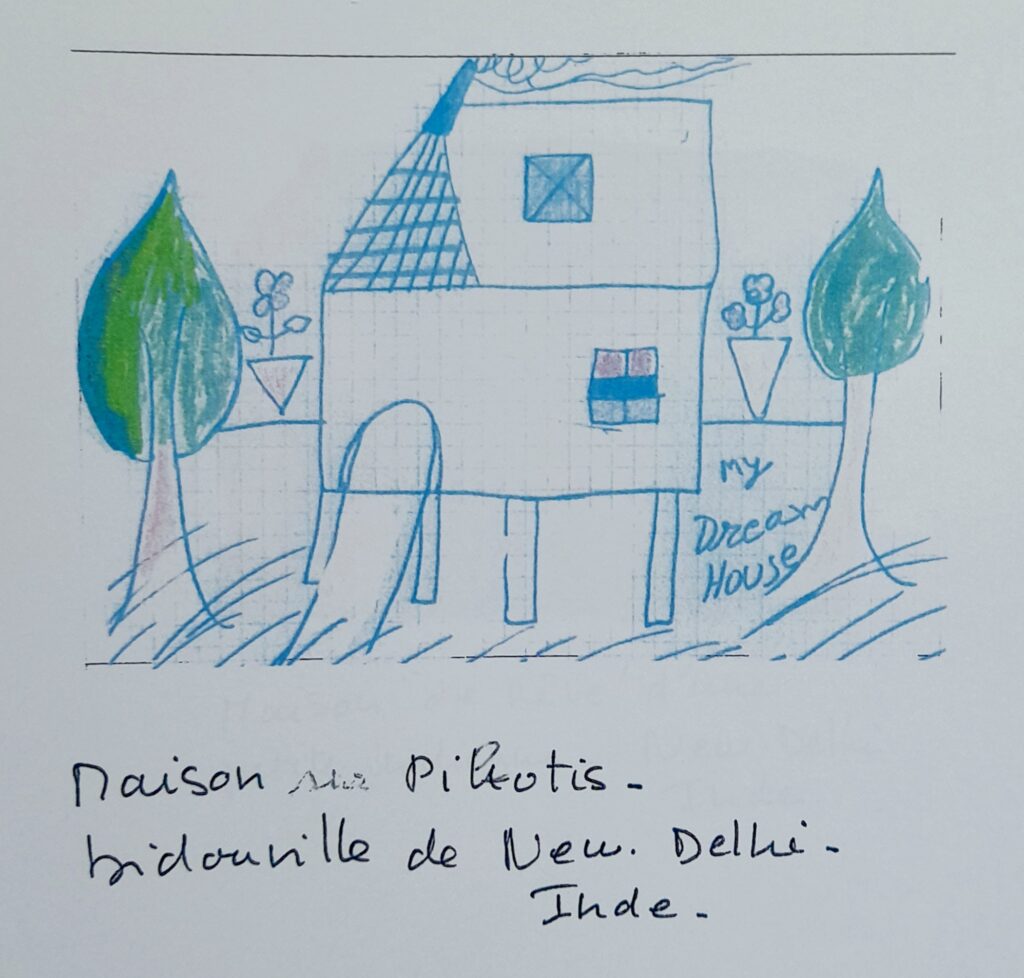 My
Dream
House
Maison sur Pilotis.
bidonville de New. Delhi.
Inde.